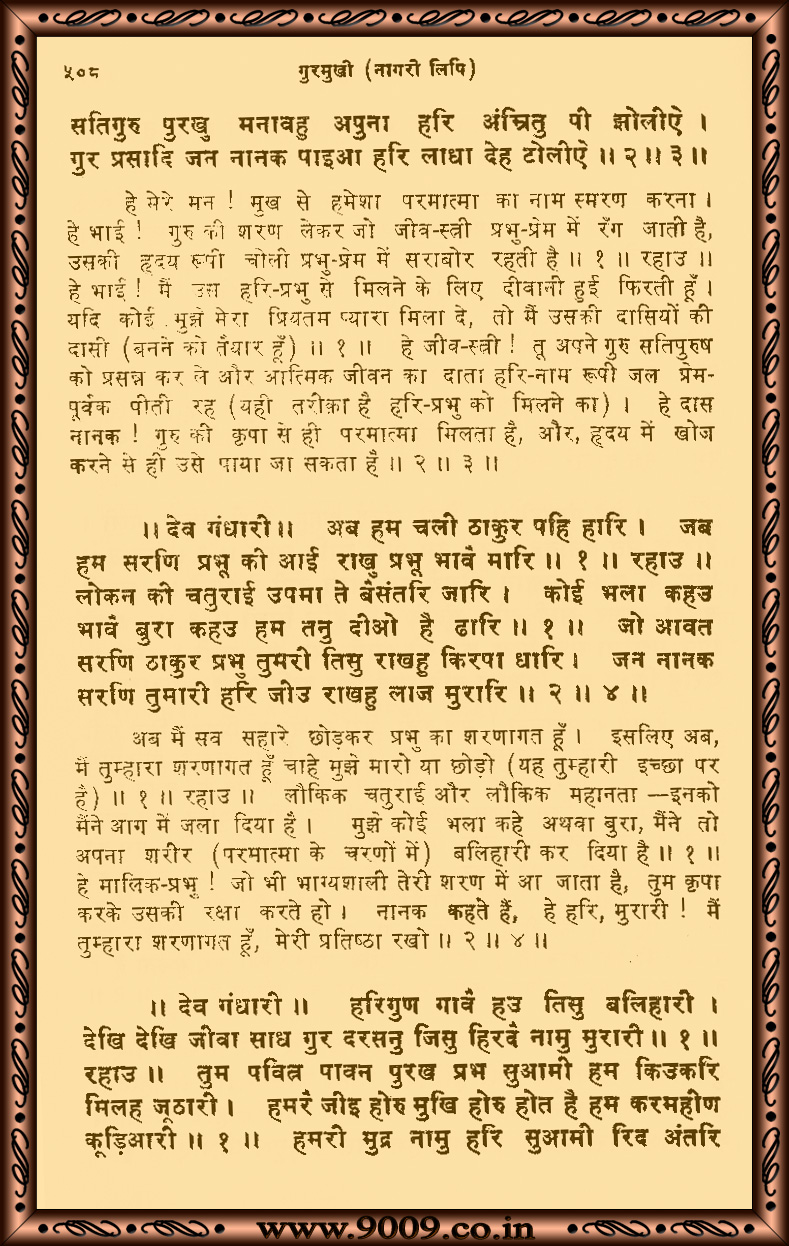 ५०८ गुरमुखी (नागरी लिपि)
सतिगुरु पुरखु मनावहु अपुना हरि अंम्रितु पी झोलीऐ ।
गुर प्रसादि जन नानक पाइआ हरि लाधा देह टोलीऐ ॥ २ ॥ ३ ॥
हे मेरे मन ! मुख से हमेशा परमात्मा का नाम स्मरण करना ।
हे भाई ! गुरु की शरण लेकर जो जीव-स्त्री प्रभु-प्रेम में रँग जाती है,
उसकी हृदय रूपी चोली प्रभु-प्रेम में सराबोर रहती है ॥ १ ॥ रहाउ ॥
हे भाई ! मैं उस हरि-प्रभु से मिलने के लिए दीवानी हुई फिरती हूँ ।
यदि कोई मुझे मेरा प्रियतम प्यारा मिला दे, तो मैं उसकी दासियों की
दासी (बनने को तैयार हूँ) ॥ १ ॥ हे जीव-स्त्री ! तू अपने गुरु सतिपुरुष
को प्रसन्न कर ले और आत्मिक जीवन का दाता हरि-नाम रूपी जल प्रेम-
पूर्वक पीती रह (यही तरीक़ा है हरि-प्रभु को मिलने का) । हे दास
नानक ! गुरु की कृपा से ही परमात्मा मिलता है, और, हृदय में खोज
करने से ही उसे पाया जा सकता है ॥ २ ॥ ३ ॥
॥ देव गंधारी ॥ अब हम चली ठाकुर पहि हारि । जब
हम सरणि प्रभू की आई राखु प्रभू भावै मारि ॥ १ ॥ रहाउ ॥
लोकन की चतुराई उपमा ते बैसंतरि जारि । कोई भला कहउ
भावै बुरा कहउ हम तनु दीओ है ढारि ॥ १ ॥ जो आवत
सरणि ठाकुर प्रभु तुमरी तिसु राखहु किरपा धारि । जन नानक
सरणि तुमारी हरि जीउ राखहु लाज मुरारि ॥ २ ॥ ४ ॥
अब मैं सब सहारे छोड़कर प्रभु का शरणागत हूँ । इसलिए अब,
मैं तुम्हारा शरणागत हूँ चाहे मुझे मारो या छोड़ो (यह तुम्हारी इच्छा पर
है) ॥ १ ॥ रहाउ ॥ लौकिक चतुराई और लौकिक महानता —इनको
मैंने आग में जला दिया है । मुझे कोई भला कहे अथवा बुरा, मैंने तो
अपना शरीर (परमात्मा के चरणों में) बलिहारी कर दिया है ॥ १ ॥
हे मालिक-प्रभु ! जो भी भाग्यशाली तेरी शरण में आ जाता है, तुम कृपा
करके उसकी रक्षा करते हो । नानक कहते हैं, हे हरि, मुरारी ! मैं
तुम्हारा शरणागत हूँ, मेरी प्रतिष्ठा रखो ॥ २ ॥ ४ ॥
॥ देव गंधारी ॥ हरिगुण गावै हउ तिसु बलिहारी ।
देखि देखि जीवा साध गुर दरसनु जिसु हिरदै नामु मुरारी ॥ १ ॥
रहाउ ॥ तुम पवित्र पावन पुरख प्रभ सुआमी हम किउकरि
मिलह जूठारी । हमरै जीइ होरु मुखि होरु होत है हम करमहीण
कूड़िआरी ॥ १ ॥ हमरी मुद्र नामु हरि सुआमी रिद अंतरि
www.9009.co.in